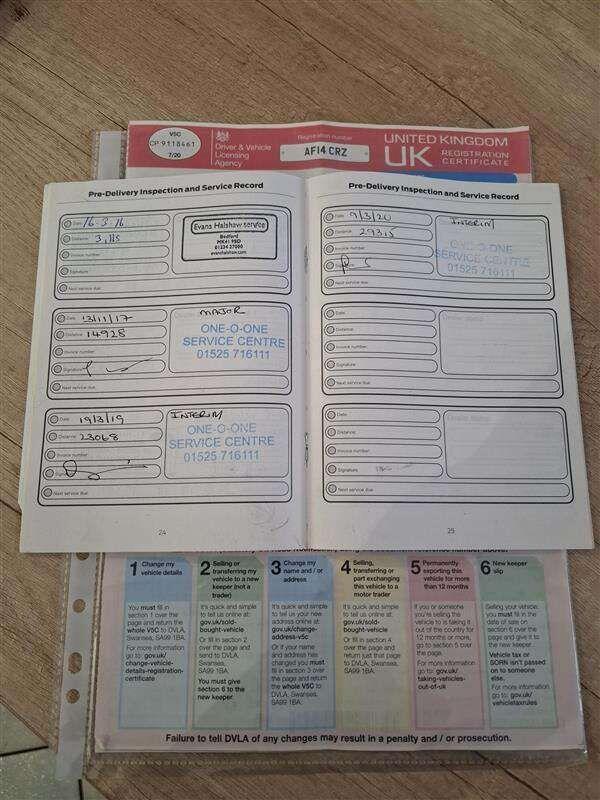 V5C
CP 9118461
7/20
Driver & Vehicle
Licensing
Agency
Registration number
AF14 CRZ
UNITED KINGDOM
UK REGISTRATION
CERTIFICATE
Pre-Delivery Inspection and Service Record
Date 16-3-16
Distance 3,115
Invoice number
Signature
Next service due
Evans Halshaw service
Bedford
MK41 9BD
01234 27000
evanshalshaw.com
Date 13/11/17
Distance 14928
Invoice number
Signature
Next service due
MAJOR
ONE-O-ONE
SERVICE CENTRE
01525 716111
Date 19/3/19
Distance 23068
Invoice number
Next service due
INTERIM
ONE-O-ONE
SERVICE CENTRE
01525 716111
24
Pre-Delivery Inspection and Service Record
Date 9/3/20
Distance 29315
Invoice number
Next service due
INTERIM
ONE-O-ONE
SERVICE CENTRE
01525 716111
Date:
Distance:
Invoice number:
Signature
Next service due
Date:
Distance:
Invoice number:
Signature
Next service due
25
1 Change my
vehicle details
You must fill in
section 1 over the
page and return the
whole V5C to DVLA,
Swansea, SA99 1BA.
For more information
go to: gov.uk/
change-vehicle-
details-registration-
certificate
2 Selling or
transferring my
vehicle to a new
keeper (not a
trader)
It's quick and simple
to tell us online at:
gov.uk/sold-
bought-vehicle
Or fill in section 2
over the page and
send to DVLA,
Swansea,
SA99 1BA.
You must give
section 6 to the
new keeper.
3 Change my
name and / or
address
It's quick and simple
to tell us your new
address online at:
gov.uk/change-
address-v5c
Or if your name
and address has
changed you must
fill in section 3 over
the page and return
the whole V5C to
DVLA, Swansea,
SA99 1BA.
4 Selling,
transferring or
part exchanging
this vehicle to a
motor trader
It's quick and simple
to tell us online at:
gov.uk/sold-
bought-vehicle
Or fill in section 4
over the page and
return just that page
to DVLA, Swansea,
SA99 1BA.
5 Permanently
exporting this
vehicle for more
than 12 months
If you or someone
you're selling the
vehicle to is taking it
out of the country for
12 months or more,
go to section 5 over
the page.
For more information
go to: gov.uk/
taking-vehicles-
out-of-uk
6 New keeper
slip
Selling your vehicle,
you must fill in the
date of sale on
section 6 over the
page and give it to
the new keeper.
Vehicle tax or
SORN isn't passed
on to someone
else.
For more information
go to: gov.uk/
vehicletaxrules
Failure to tell DVLA of any changes may result in a penalty and / or prosecution.